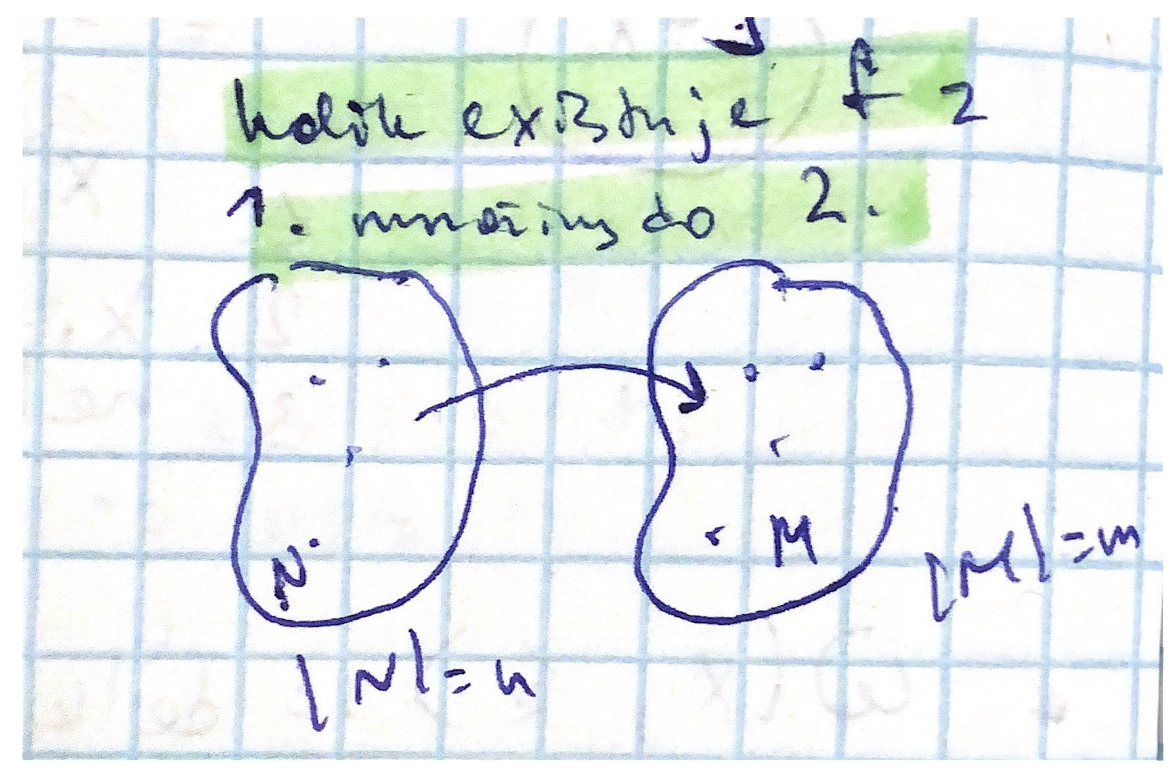 kolik existuje f z
1. množiny do 2.
N M
|M|=m
|N|=n